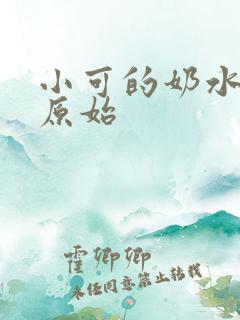 小可的奶水
原始
霍卿卿
未经同意禁止转载